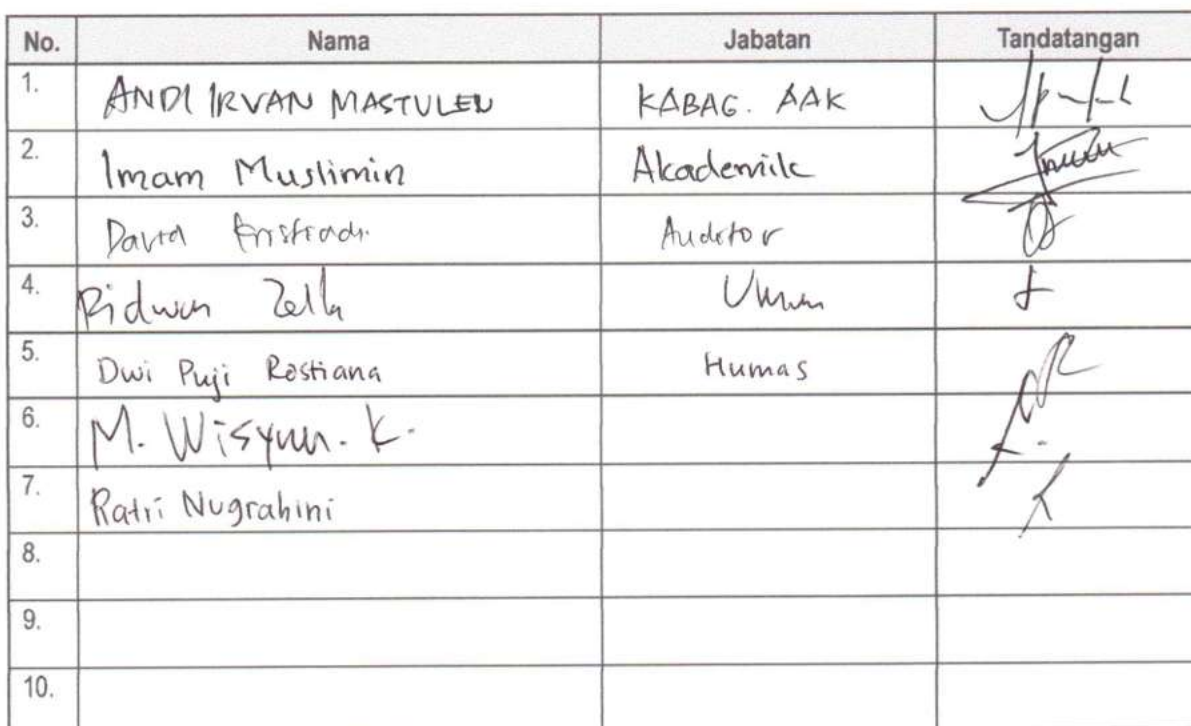 No. Nama Jabatan Tandatangan
1. ANDI IRVAN MASTULEN KABAG. AAK
2. Imam Muslimin Akademik
3. David Auditor
4. Ridwan Zella Umum
5. Dwi Puji Rostiana Humas
6. M. K.
7. Ratri Nugrahini
8.
9.
10.